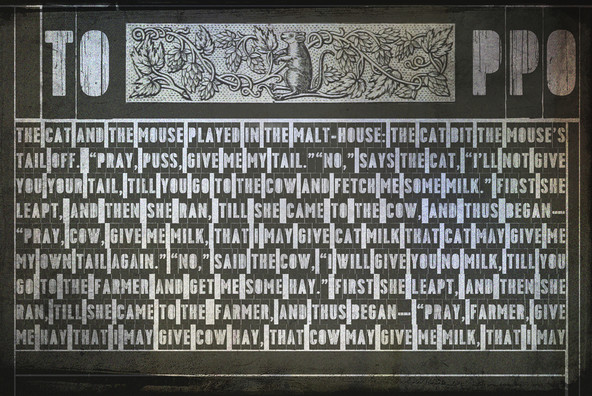 TO PPO
THE CAT AND THE MOUSE PLAYED IN THE MALT-HOUSE: THE CAT BIT THE MOUSE'S
TAIL OFF. "PRAY, PUSS, GIVE ME MY TAIL." "NO," SAYS THE CAT, "I'LL NOT GIVE
YOU YOUR TAIL, TILL YOU GO TO THE COW AND FETCH ME SOME MILK." FIRST SHE
LEAPT, AND THEN SHE RAN, TILL SHE CAME TO THE COW, AND THUS BEGAN—
"PRAY, COW, GIVE ME MILK, THAT I MAY GIVE CAT MILK THAT CAT MAY GIVE ME
MY OWN TAIL AGAIN." "NO," SAID THE COW, "I WILL GIVE YOU NO MILK, TILL YOU
GO TO THE FARMER AND GET ME SOME HAY." FIRST SHE LEAPT, AND THEN SHE
RAN, TILL SHE CAME TO THE FARMER, AND THUS BEGAN— "PRAY, FARMER, GIVE
ME HAY THAT I MAY GIVE COW HAY, THAT COW MAY GIVE ME MILK, THAT I MAY